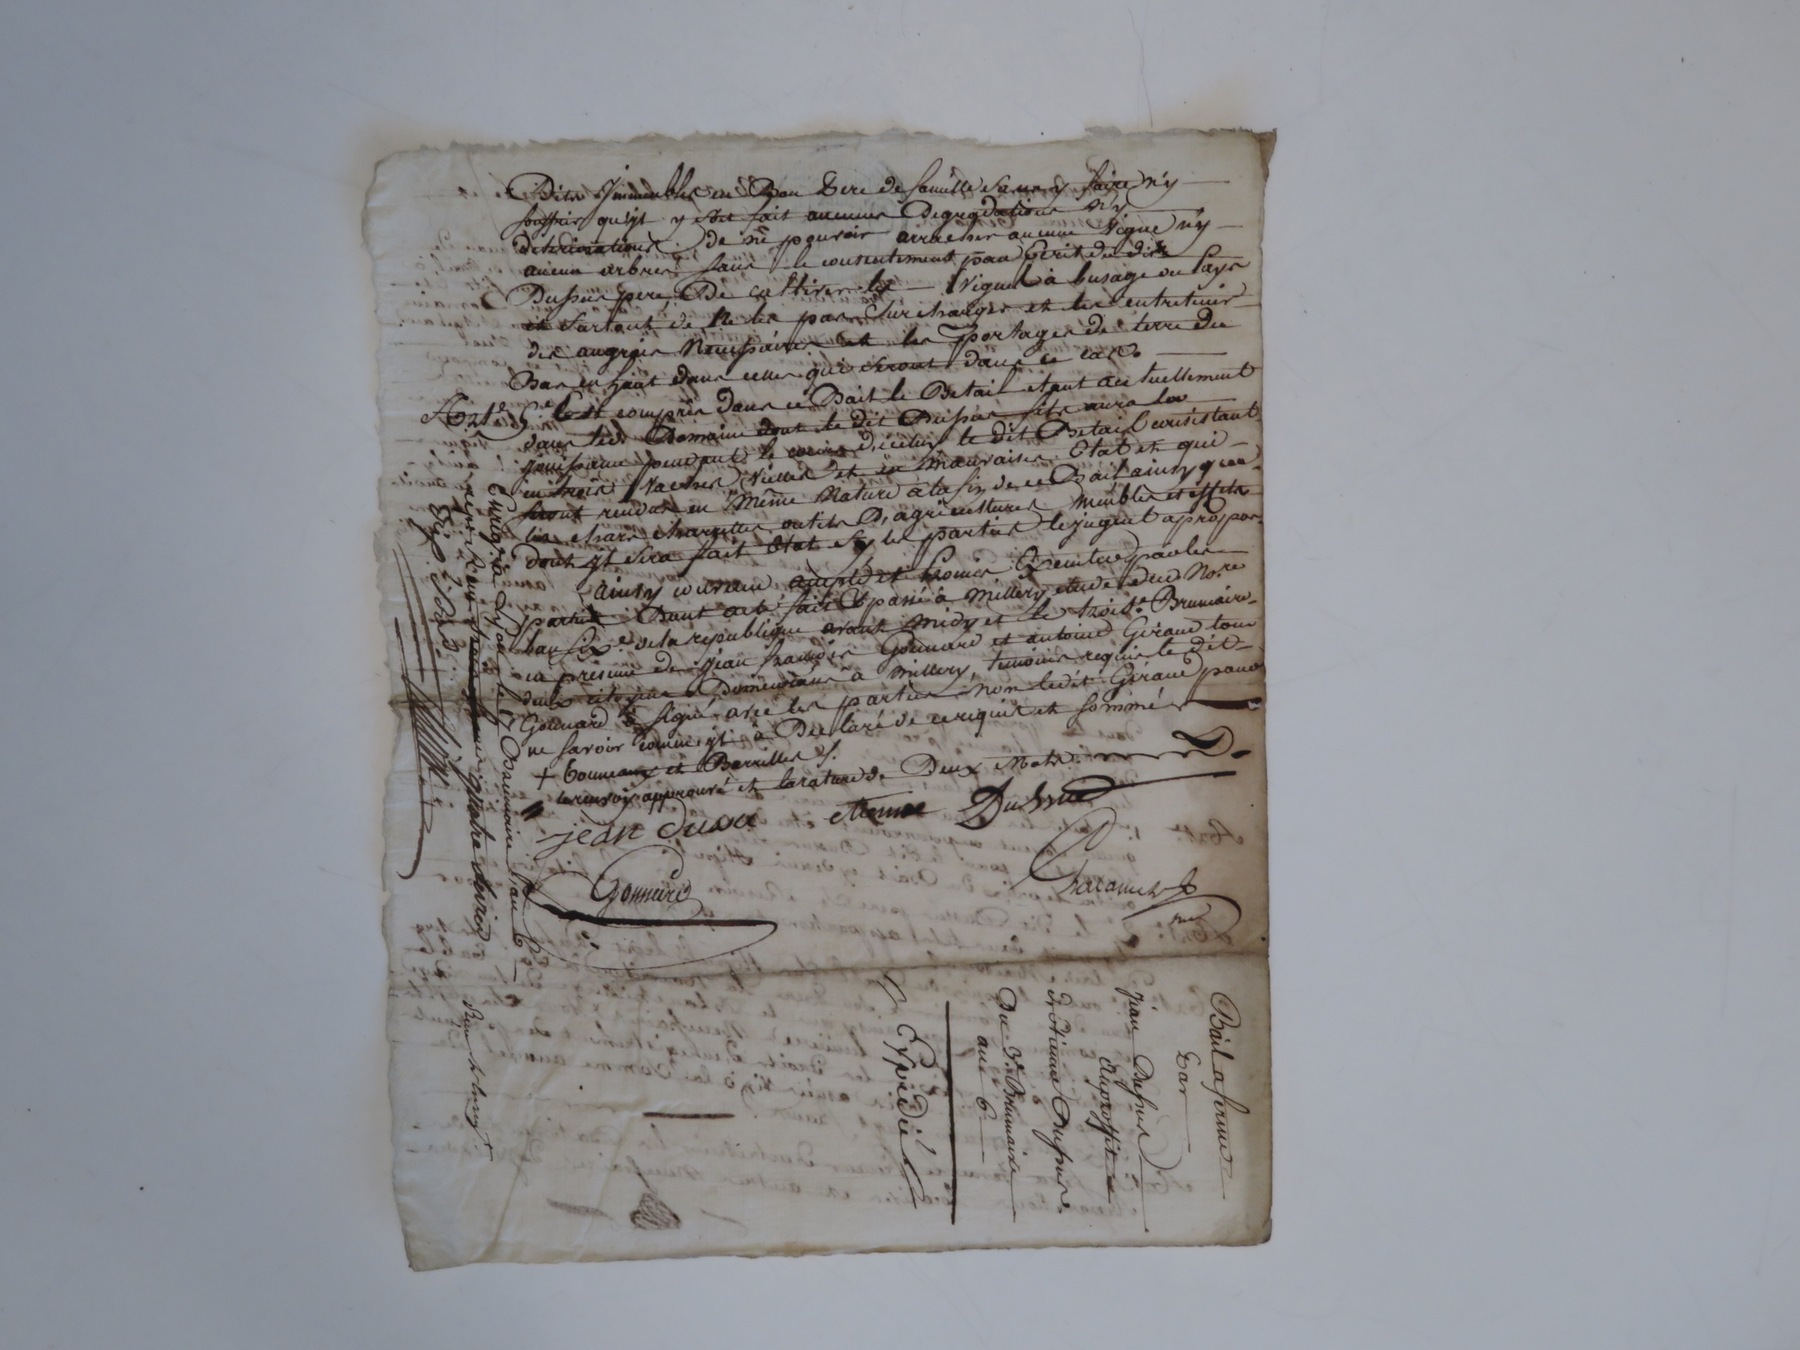 Dits Immeubles en Bon Pere de famille sans y faire n'y
souffrir qu'jl y soit fait aucunes Degradations n'y
deteriorations. De ne pouvoir arracher aucune Vigne n'y
aucun arbres sans le consentement par Ecrit du dit
Dussur pere, De cultiver les Vignes à lusage du Pays
et surtout de Ne les pas Surcharger et les entretenir
des angrais Necessaires et les Portages de terre du
Bas en haut dans celles qui seront dans ce cas.
Art. 5e Est compris dans ce Bail le Betail etant actuellement
dans led. Domaine dont le dit Dussur fils aura la
jouissance pendant le cours d'icelui, le dit Betail consistant
en trois Vaches Vielles et en Mauvaises Etat et qui
seront rendus en Même Nature à la fin de ce Bail ainsy que
les chars charettes outils D'agricultures Meubles et effets
dont jl sera fait Etat sy les parties le jugent apropos.
Ainsy convenu accepté et Promis Executer par les
parties Dont acte fait & passé à Millery, etude dud. No.re
lan six.e de la republique avant midy et le trois.e Brumaire
en presence de Jean francois Gonnard et antoine Geraud tous
deux citoyens Demeurans à Millery, temoins requis le dit
Gonnard a signé avec les parties non ledit Geraud pour
ne savoir comme jl a Declaré de ce requis et sommé
+ tonneaux et Barrilles /.
le renvoy approuvé et la rature de Deux Mots
jean etienne
Gonnard
Enregtré à Lyon le Brumaire an 6
Bail a ferme
Par
Jean Dussur
Au proffit de
Etienne Dussur
Du 3e Brumaire
an 6
Expédié